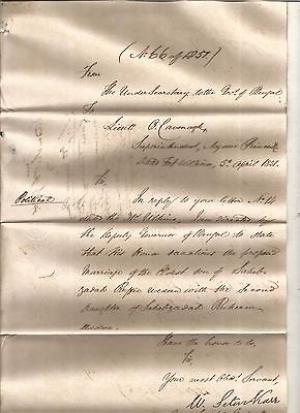 (No 66 of 1851.)
From
The Under Secretary to the Govt. of Bengal
To
Lieut O. Cavenagh,
Superintendent, Mysore Princes
dated Fort William, 5th April 1851.
Sir,
Political
In reply to your letter No
dated the Ultimo, I am directed by
the Deputy Governor of Bengal to state
that His Honor sanctions the proposed
Marriage of the son of Sahib-
zadah with the Second
daughter of Sahibzadah
Have the honor to be,
Sir,
Your most Obdt. Servant,
W. Seton Karr